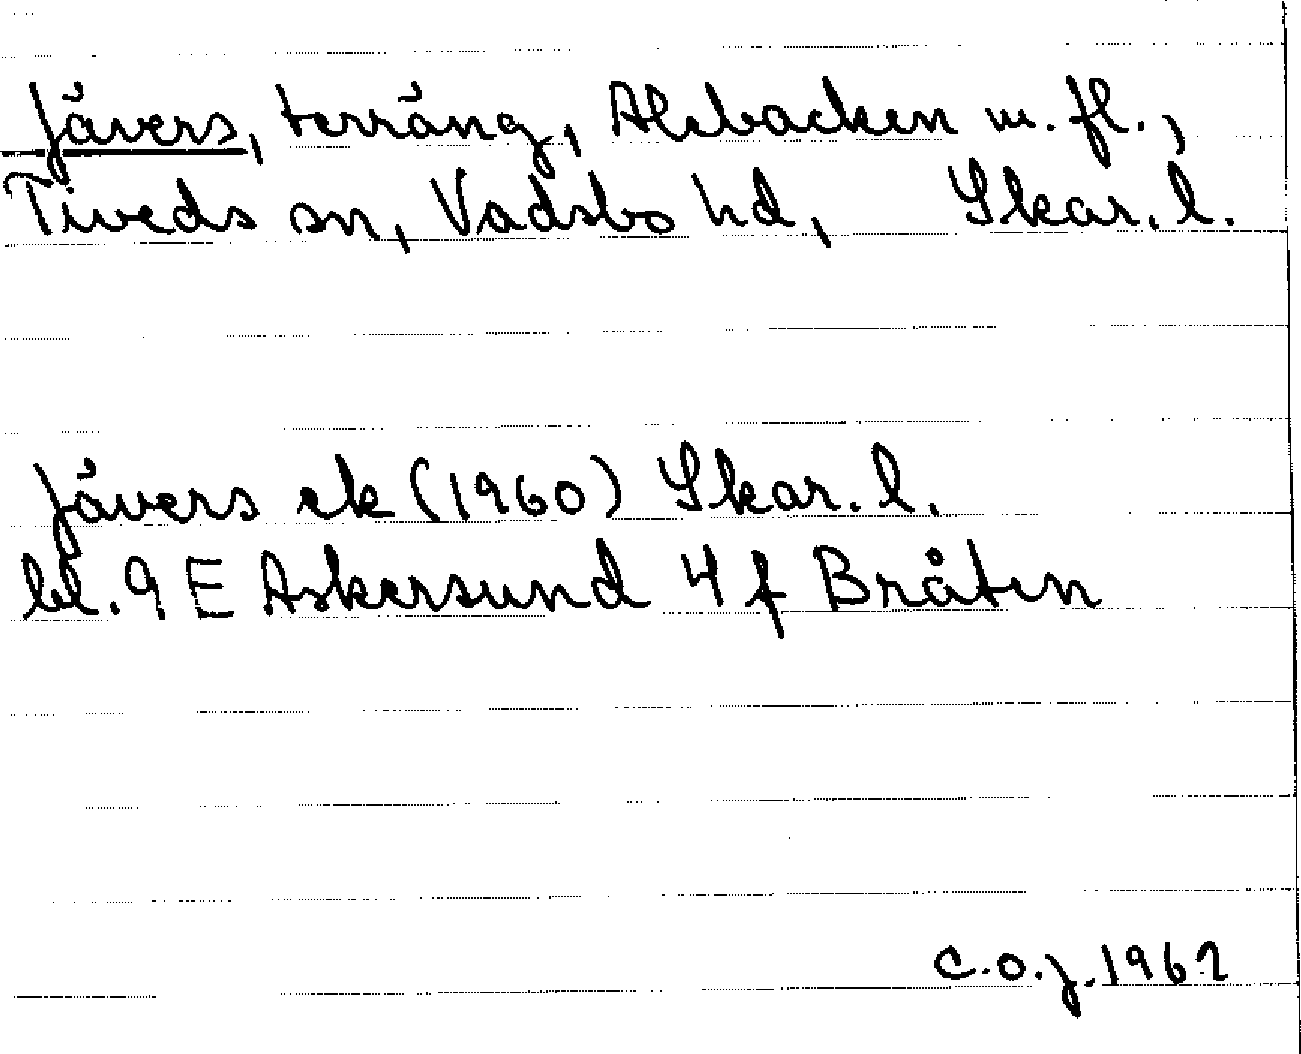 Jävers, terräng, Alebacken m. fl.,
Tiveds sn, Vadsbo hd, Skar. l.
Jävers ek (1960) Skar. l.
bl. 9 E Askersund 4 f Bråten
C.O.J. 1962